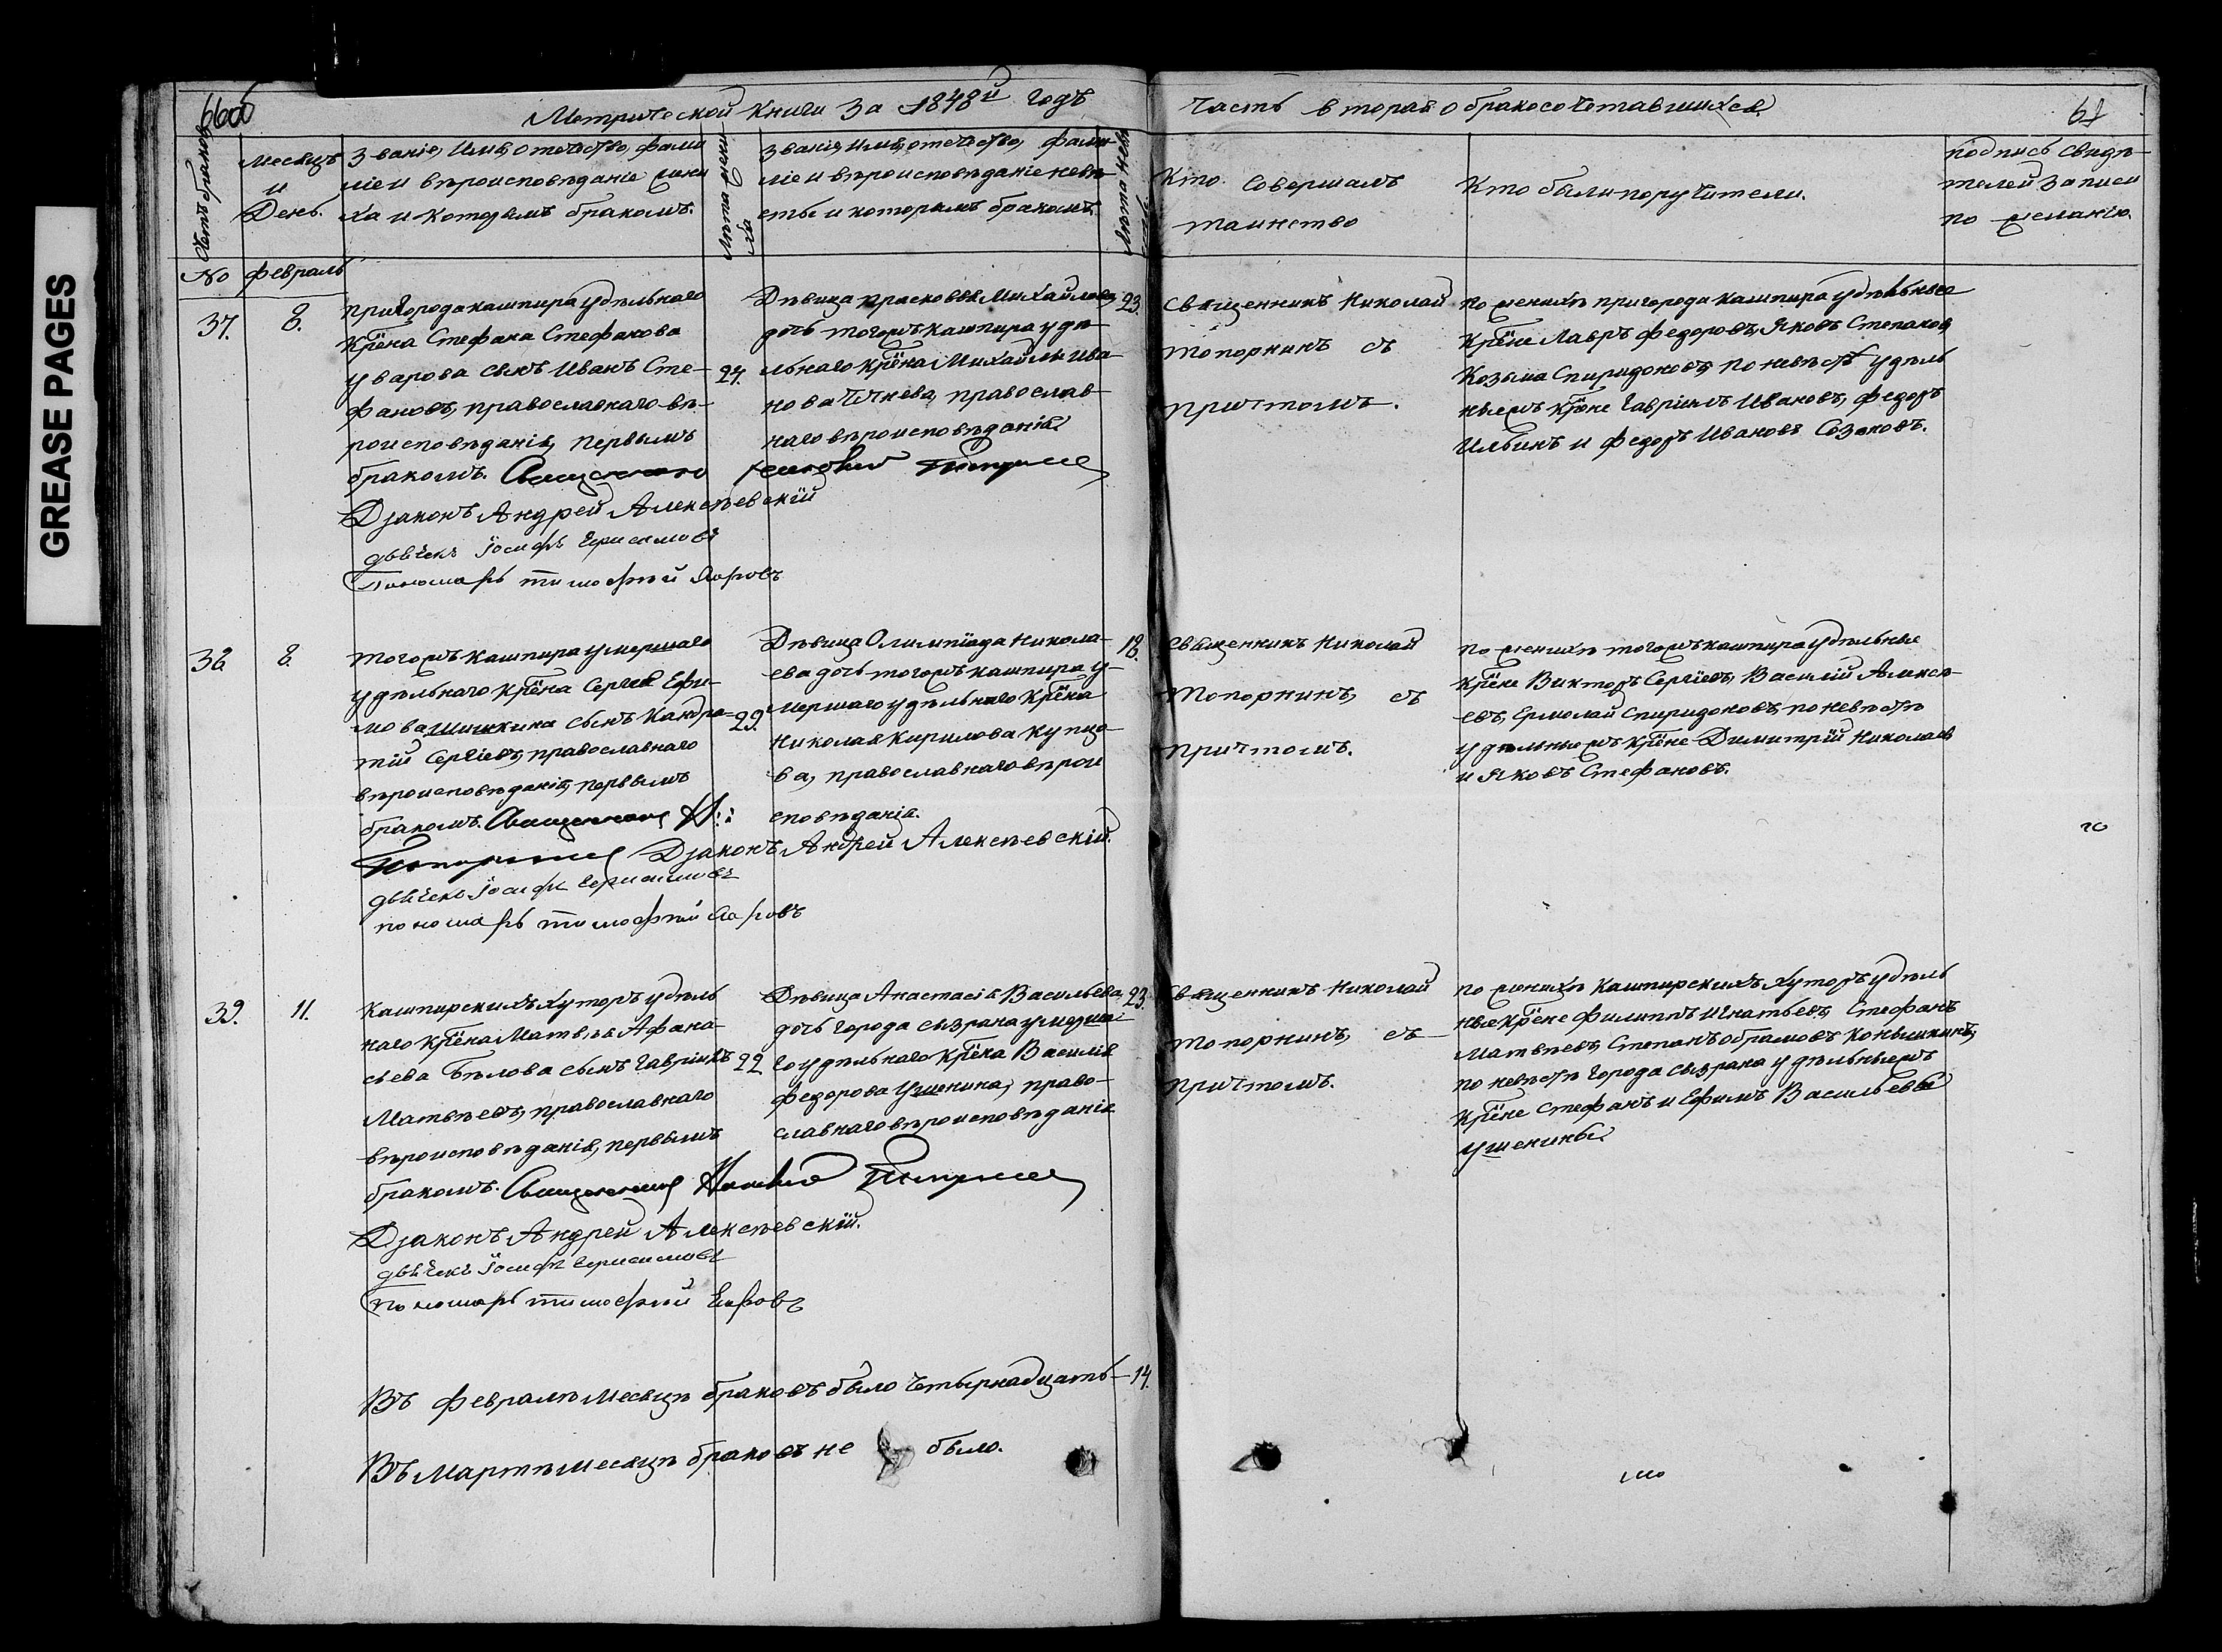 GREASE PAGES
Метрической Книги За 1848й годъ
Часть вторая о бракосочетавшихся
67
Счетъ браковъ
Месяцъ
и
День.
Званіе, Имя, отечество, фами
ліе и вѣроисповѣданіе жени
ха и которымъ бракомъ.
Лѣта жени
ха
Званіе, имя, отечество, фами-
ліе и вѣроисповѣданіе невѣ-
сты и которымъ бракомъ.
Лѣта невѣ
Кто совершалъ
таинство
Кто были поручители.
подпись свидѣ-
телей записи
по желанію.
No
Февраль
37.
8.
пригорода кашпира удѣльнаго
крена Стефана Стефанова
Уварова сынъ Иванъ Сте-
фановъ, православнаго вѣ-
роисповѣданія, первымъ
бракомъ. Священникъ Николай Топорнинъ
Дьяконъ Андрей Алексѣевскій
дьячекъ Іосифъ Герасимовъ
Пономарь тимофѣй
24.
Дѣвица прасковья Михайлова
дочь тогожъ кашпира удѣ-
льнаго крена Михайлы Ива-
нова православ-
наго вѣроисповѣданія
23.
Священникъ Николай
Топорнинъ съ
причтомъ.
по женихѣ пригорода кашпира удѣльные
крене Лавръ федоровъ, Яковъ Степановъ
Козьма Спиридоновъ, по невѣстѣ удѣль
ныежъ крене Гавріилъ Ивановъ, федоръ
Ильинъ и федоръ Ивановъ Созоновъ.
38
8.
тогожъ кашпира умершаго
удѣльнаго крена Сергея Ефи-
мова Шишкина сынъ Кандра-
тій Сергіевъ, православнаго
вѣроисповѣданія, первымъ
бракомъ. Священникъ Н:
Топорнинъ Дьяконъ Андрей Алексѣевскій.
дьячекъ Іосифъ Герасимовъ
пономарь тимофѣй
29.
Дѣвица Олимпіада Никола-
ева дочь тогожъ кашпира у-
мершаго удѣльнаго крена
Николая Кирилова Купцо-
ва, православнаго вѣрои
сповѣданія.
18.
Священникъ Николай
Топорнинъ, съ
причтомъ.
по женихѣ тогожъ кашпира удѣльные
крене Викторъ Сергіевъ, Василій Алексѣ-
евъ, Ермолай Спиридоновъ, по невѣстѣ
удѣльныежъ крене Димитрій Николаевъ
и Яковъ Стефановъ.
39.
11.
Кашпирскихъ хуторъ удѣль
наго крена Матвѣя Афана-
сьева Бѣлова сынъ Гавріилъ
Матвѣевъ, православнаго
вѣроисповѣданія, первымъ
бракомъ. Священникъ Николай Топорнинъ
Дьяконъ Андрей Алексѣевскій.
дьячекъ Іосифъ Герасимовъ
Пономарь тимофѣй
22
Дѣвица Анастасія Васильева,
дочь города сызрана умерша-
го удѣльнаго крена Василія
Федорова Ушенина, право-
славнаго вѣроисповѣданія
23.
Священникъ Николай
Топорнинъ, съ
причтомъ.
по женихѣ Кашпирскихъ хуторъ удѣль
ные крене Филиппъ Игнатьевъ, Стефанъ
Матвѣевъ, Степанъ обрамовъ Конышкинъ,
по невѣстѣ города сызрана удѣльныежъ
крене Стефанъ и Ефимъ Васильевы
Ушенины.
Въ Февралѣ Месяцѣ браковъ было четырнадцать—14.
Въ Мартѣ Месяцѣ браковъ не было.